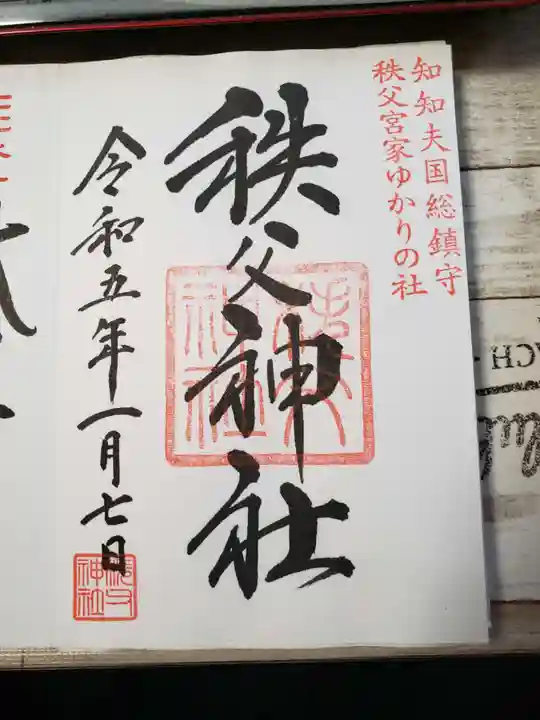 知知夫国総鎮守
秩父宮家ゆかりの社
秩父神社
秩父神社
令和五年一月七日
秩父神社
ACH